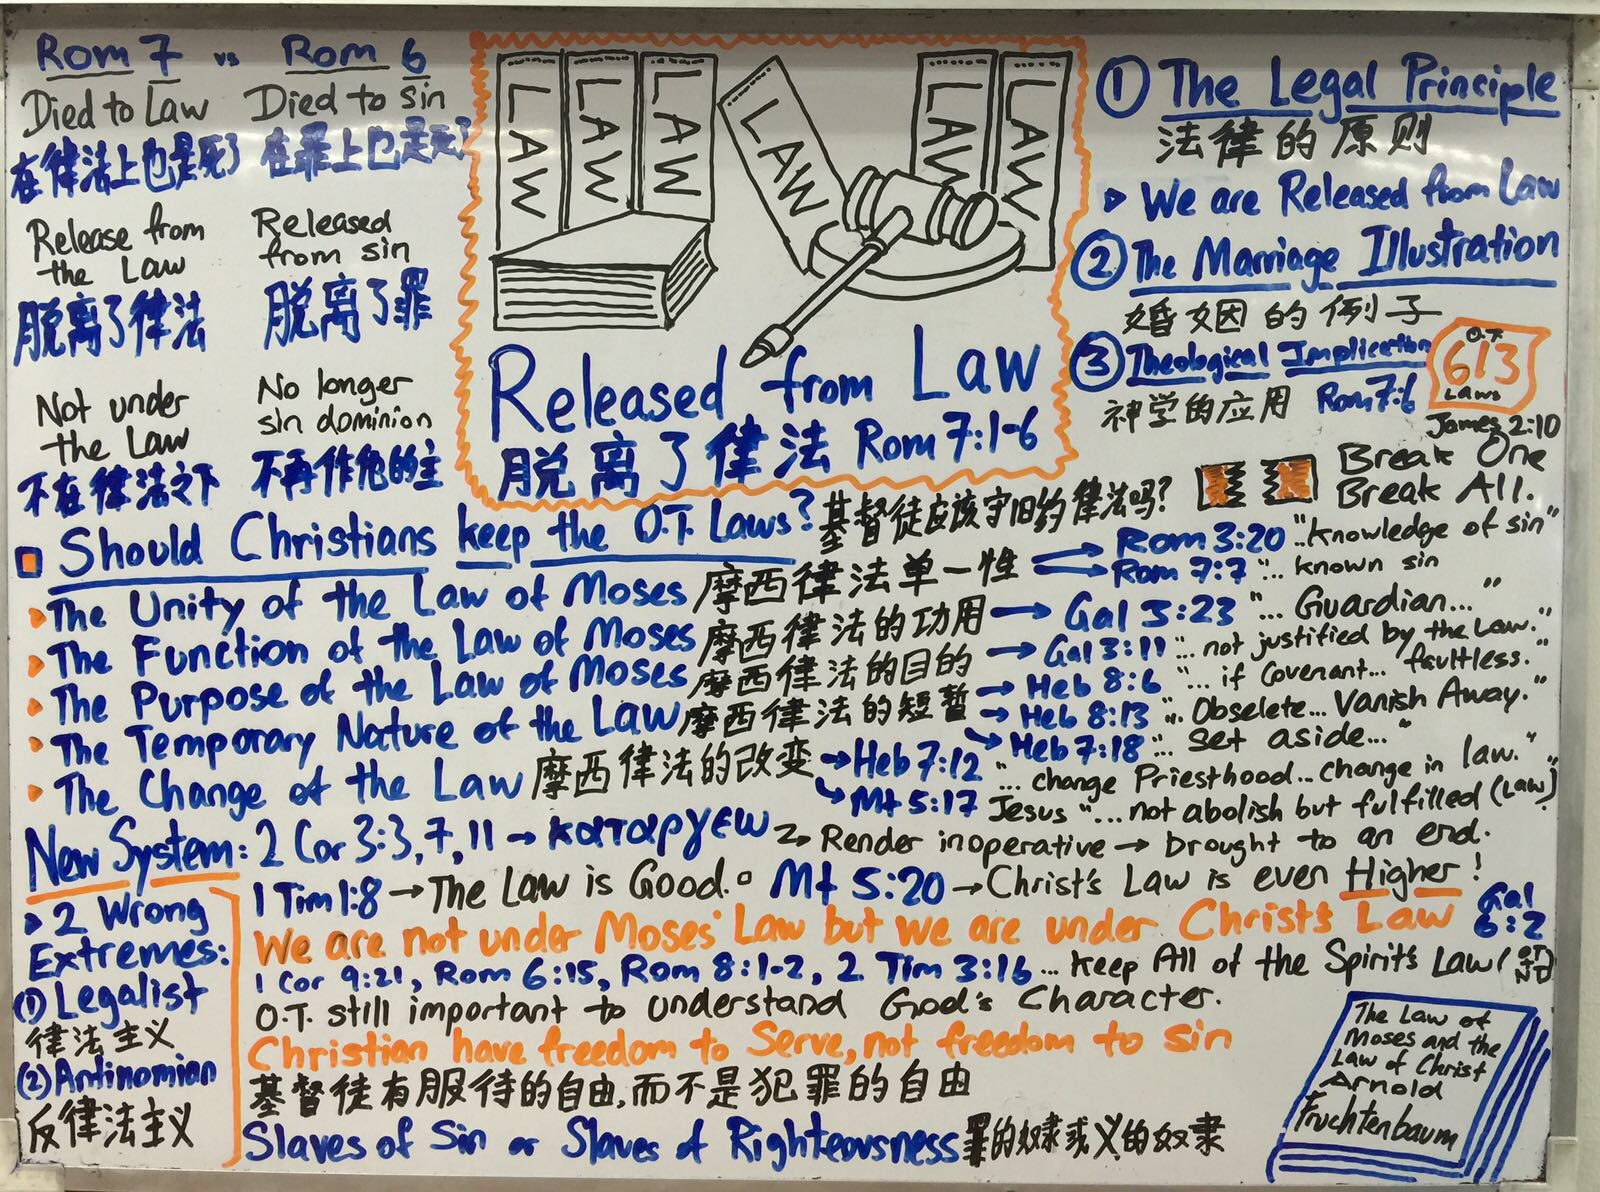 Rom 7 vs Rom 6
Died to Law
Died to sin
在律法上也是死了
在罪上也是死了
Release from
the Law
Released
from sin
脱离了律法
脱离了罪
Not under
the Law
No longer
sin dominion
不在律法之下
不再作他的主
LAW
LAW
LAW
LAW
LAW
LAW
Released from Law
脱离了律法 Rom 7:1-6
① The Legal Principle
法律的原则
We are Released from Law
② The Marriage Illustration
婚姻的例子
③ Theological Implication
神学的应用 Rom 7:6
O.T.
613
Laws
James 2:10
Break One
Break All.
Should Christians keep the O.T. Laws? 基督徒应该守旧约律法吗?
The Unity of the Law of Moses 摩西律法单一性
The Function of the Law of Moses 摩西律法的功用
The Purpose of the Law of Moses 摩西律法的目的
The Temporary Nature of the Law 摩西律法的短暂
The Change of the Law 摩西律法的改变
→ Rom 3:20 "Knowledge of sin"
→ Rom 7:7 "... known sin
→ Gal 3:23 "... Guardian..."
→ Gal 3:11 "... not justified by the Law."
→ Heb 8:6 "... if Covenant... faultless."
→ Heb 8:13 "... Obselete... Vanish Away."
→ Heb 7:18 "... Set aside..."
→ Heb 7:12 "... change Priesthood... change in law."
→ Mt 5:17 Jesus "... not abolish but fulfilled (Law)"
New System: 2 Cor 3:3, 7, 11 → καταργεω
→ Render inoperative → brought to an end.
1 Tim 1:8 → The Law is Good. Mt 5:20 → Christ's Law is even Higher!
We are not under Moses' Law but we are under Christ's Law Gal 6:2
1 Cor 9:21, Rom 6:15, Rom 8:1-2, 2 Tim 3:16 ... Keep All of the Spirit's Law (OT NT)
O.T. still important to understand God's Character.
Christian have freedom to Serve, not freedom to sin
基督徒有服侍的自由,而不是犯罪的自由
Slaves of Sin or Slaves of Righteousness 罪的奴隶或义的奴隶
2 Wrong
Extremes:
(1) Legalist
律法主义
(2) Antinomian
反律法主义
The Law of
Moses and the
Law of Christ
Arnold
Fruchtenbaum